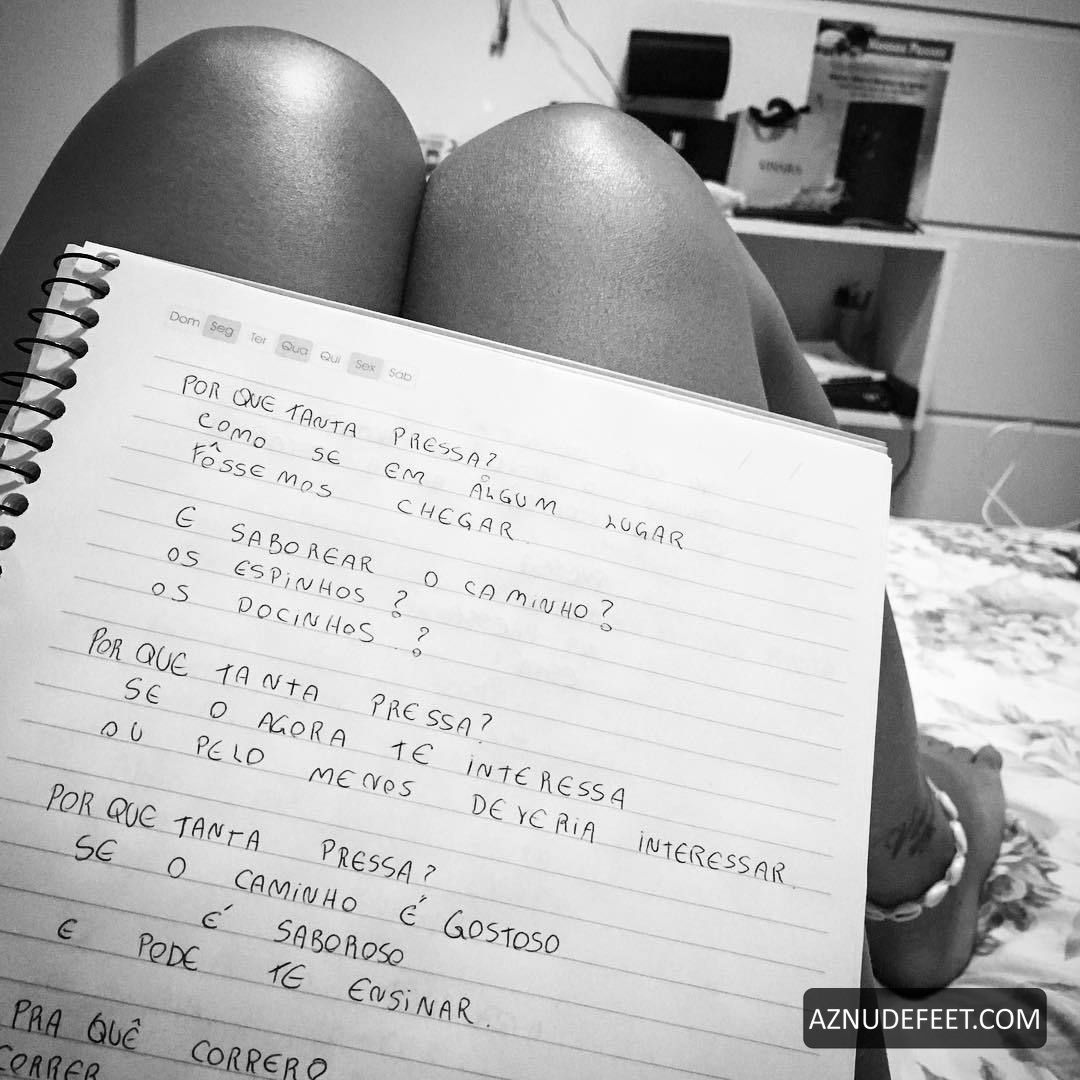 Dom Seg Ter Qua Qui Sex Sab
POR QUE TANTA PRESSA?
COMO SE EM ALGUM LUGAR
FÔSSEMOS CHEGAR.
E SABOREAR O CAMINHO?
OS ESPINHOS?
OS DOCINHOS?
POR QUE TANTA PRESSA?
SE O AGORA TE INTERESSA
OU PELO MENOS DEVERIA INTERESSAR.
POR QUE TANTA PRESSA?
SE O CAMINHO É GOSTOSO
É SABOROSO
E PODE TE ENSINAR.
PRA QUÊ CORRER?
CORRER
AZNUDEFEET.COM